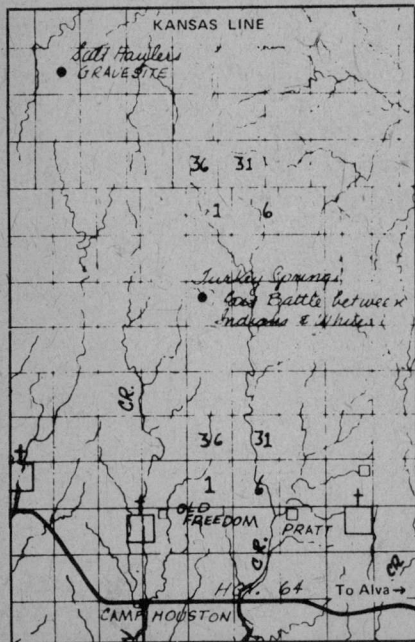 KANSAS LINE
Salt Haulers
GRAVESITE
36 31
1 6
Turkey Springs
Last Battle between
Indians & Whites
CR.
36 31
1 6
OLD
FREEDOM
PRATT
CR.
CR
HW. 64
To Alva→
CAMP HOUSTON